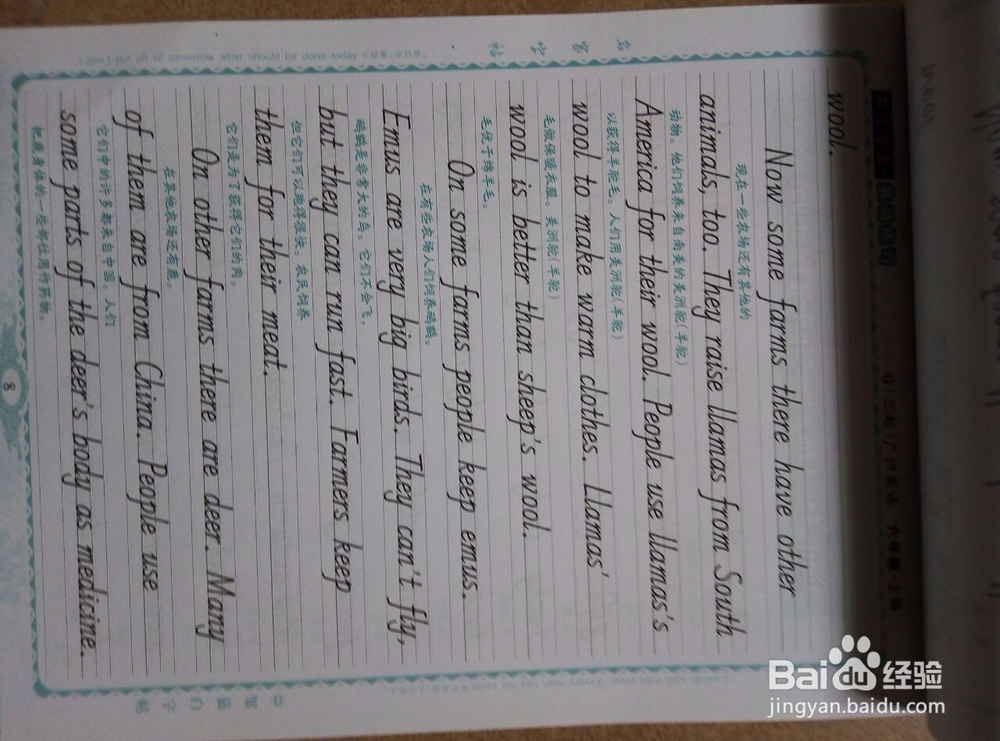 wool.
Now some farms there have other
现在一些农场还有其他的
animals, too. They raise llamas from South
动物。他们饲养来自南美的美洲驼(羊驼)
America for their wool. People use llamas's
以获得羊驼毛。人们用美洲驼(羊驼)
wool to make warm clothes. Llamas'
毛做保暖衣服。美洲驼(羊驼)
wool is better than sheep's wool.
毛优于绵羊毛。
On some farms people keep emus.
在有些农场人们饲养鸸鹋。
Emus are very big birds. They can't fly,
鸸鹋是非常大的鸟。它们不会飞,
but they can run fast. Farmers keep
但它们可以跑得很快。农民饲养
them for their meat.
它们是为了获得它们的肉。
On other farms there are deer. Many
在其他农场还有鹿。
of them are from China. People use
它们中的许多都来自中国。人们
some parts of the deer's body as medicine.
把鹿身体的一些部位用作药物。
8
名家字帖
(三起)广州英语 六年级 上册
put off till tomorrow what should be done today
Baidu经验
jingyan.baidu.com